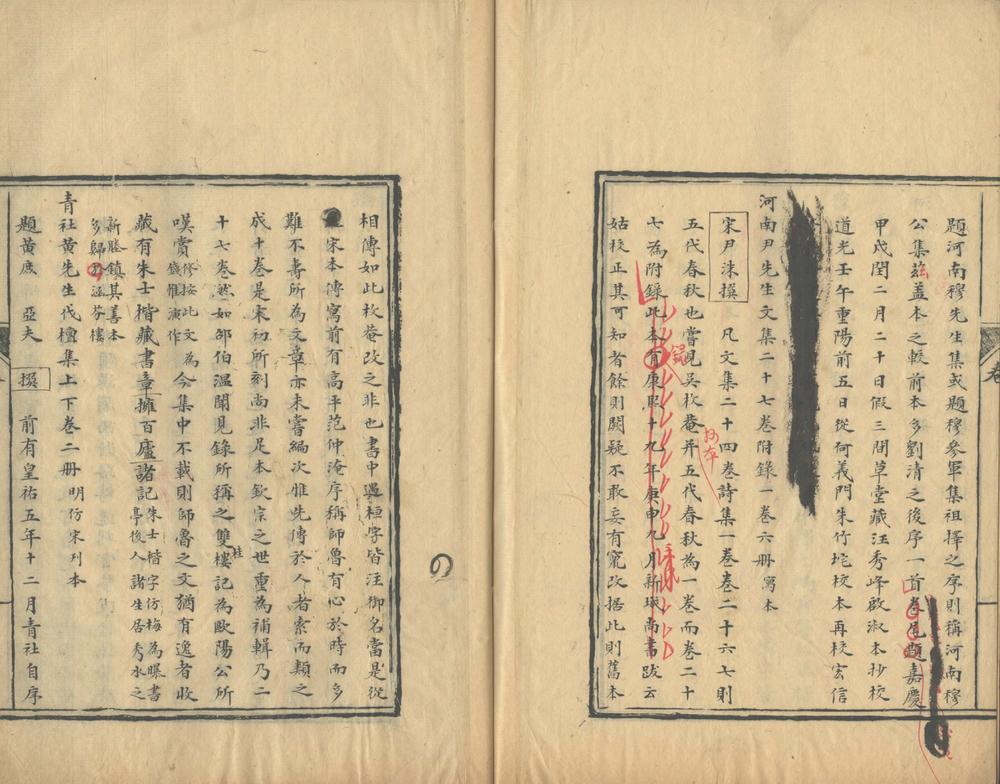 題河南穆先生集或題穆參軍集祖擇之序則稱河南穆
公集茲盖本之較前本多劉清之後序一首卷尾題嘉慶
甲戌閏二月二十日假三間草堂藏汪秀峰啟淑本抄校
道光壬午重陽前五日從何義門朱竹垞校本再校宏信
河南尹先生文集二十七卷附錄一卷六冊寫本
宋尹洙撰 凡文集二十四卷詩集一卷卷二十六七則
五代春秋也嘗見吴枚菴並五代春秋為一卷而卷二十
抄本
七為附錄此本有康熙十九年庚申九月新城尚書跋云
錄
姑校正其可知者餘則闕疑不敢妄有竄改据此則舊本
相傳如此枚菴改之非也書中遇桓字皆注御名當是從
宋本傳寫前有高平范仲淹序稱師魯有心於時而多
難不壽所為文章亦未嘗編次惟先傳於人者索而類之
成十卷是宋初所刻尚非足本欽宗之世重為補輯乃二
十七卷然如邵伯溫聞見錄所稱之雙桂樓記為歐陽公所
嘆賞修按此文為錢惟演作今集中不載則師魯之文猶有逸者收
藏有朱士楷藏書章擁百廬諸記朱士楷字仿梅為曝書亭後人諸生居秀水之
新塍鎮其善本多歸於涵芬樓
青社黃先生伐檀集上下卷二冊明仿宋列本
題黃庶 亞夫 撰 前有皇祐五年十二月青社自序